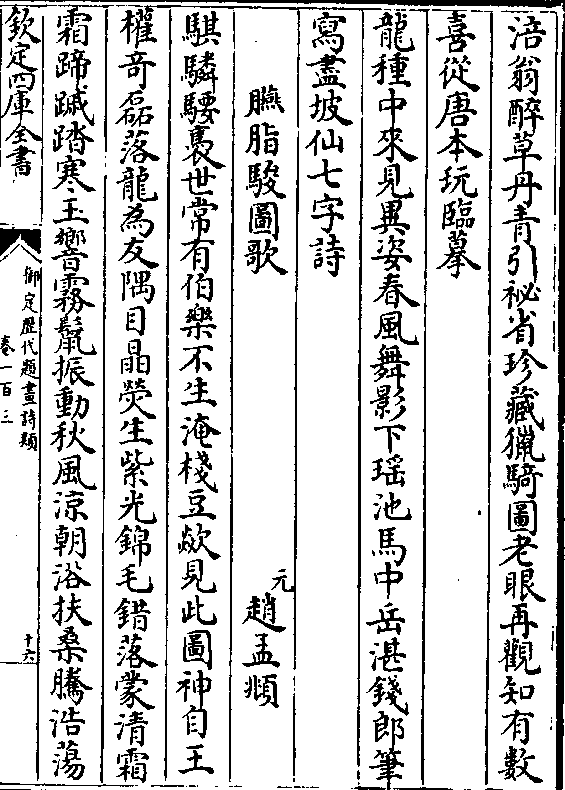 涪翁醉草丹青引祕省珍藏獵騎圖老眼再觀知有數
喜從唐本玩臨摹
龍種中來見異姿春風舞影下瑶池馬中岳湛錢郎筆
寫盡坡仙七字詩
臙脂駿圖歌
元
趙孟頫
騏驎騕褭世常有伯樂不生淹棧豆歘見此圖神自王
權奇磊落龍為友隅目晶熒生紫光錦毛錯落蒙清霜
霜蹄蹴踏寒玉響霧鬛振動秋風涼朝浴扶桑騰浩蕩
欽定四庫全書
御定歷代題畫詩類
卷一百三
十六